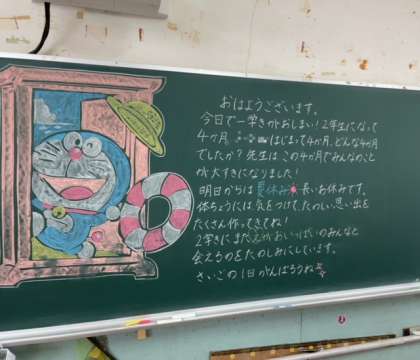 おはようございます。
今日で一学きがおしまい！2年生になって
4か月 はじまって4か月、どんな4か月
でしたか？先生はこの4か月でみんなのこと
が大すきになりました！
明日からは夏休み 長いお休みです。
体ちょうには気をつけて、たのしい思い出を
たくさん作ってきてね！
2学きにまたえがおいっぱいのみんなと
会えるのをたのしみにしています。
さいごの1日がんばろうね